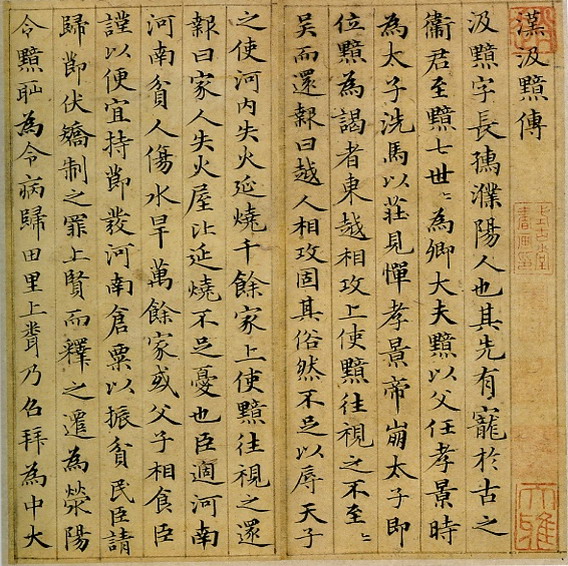 漢汲黯傳
汲黯字長孺濮陽人也其先有寵於古之
衛君至黯七世〻為卿大夫黯以父任孝景時
為太子洗馬以莊見憚孝景帝崩太子即
位黯為謁者東越相攻上使黯往視之不至〻
吴而還報曰越人相攻固其俗然不足以辱天子
之使河内失火延燒千餘家上使黯往視之還
報曰家人失火屋比延燒不足憂也臣適河南
河南貧人傷水旱萬餘家或父子相食臣
謹以便宜持節發河南倉粟以振貧民臣請
歸節伏矯制之罪上賢而釋之遷為滎陽
令黯恥為令病歸田里上聞乃召拜為中大
大雅